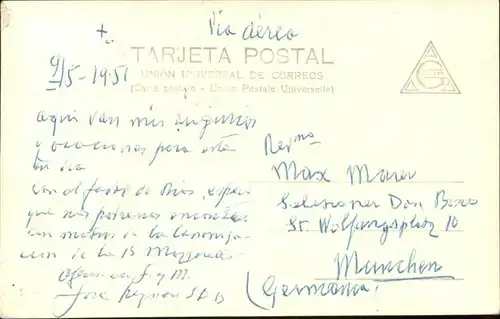 +
Via aérea
9/5-1951
TARJETA POSTAL
UNIÓN UNIVERSAL DE CORREOS
(Carte postale - Union Postale Universelle)
aqui van mis
y oraciones para este
dia
con el favor de Dios, espero
que nos podremos encontrar
con motivo de la
de la B Mazzarello
José SDB
Rev.mo
Max Maier
Salesianer Don Bosco
St. Wolfgangsplatz 10
Muenchen
(Germania)